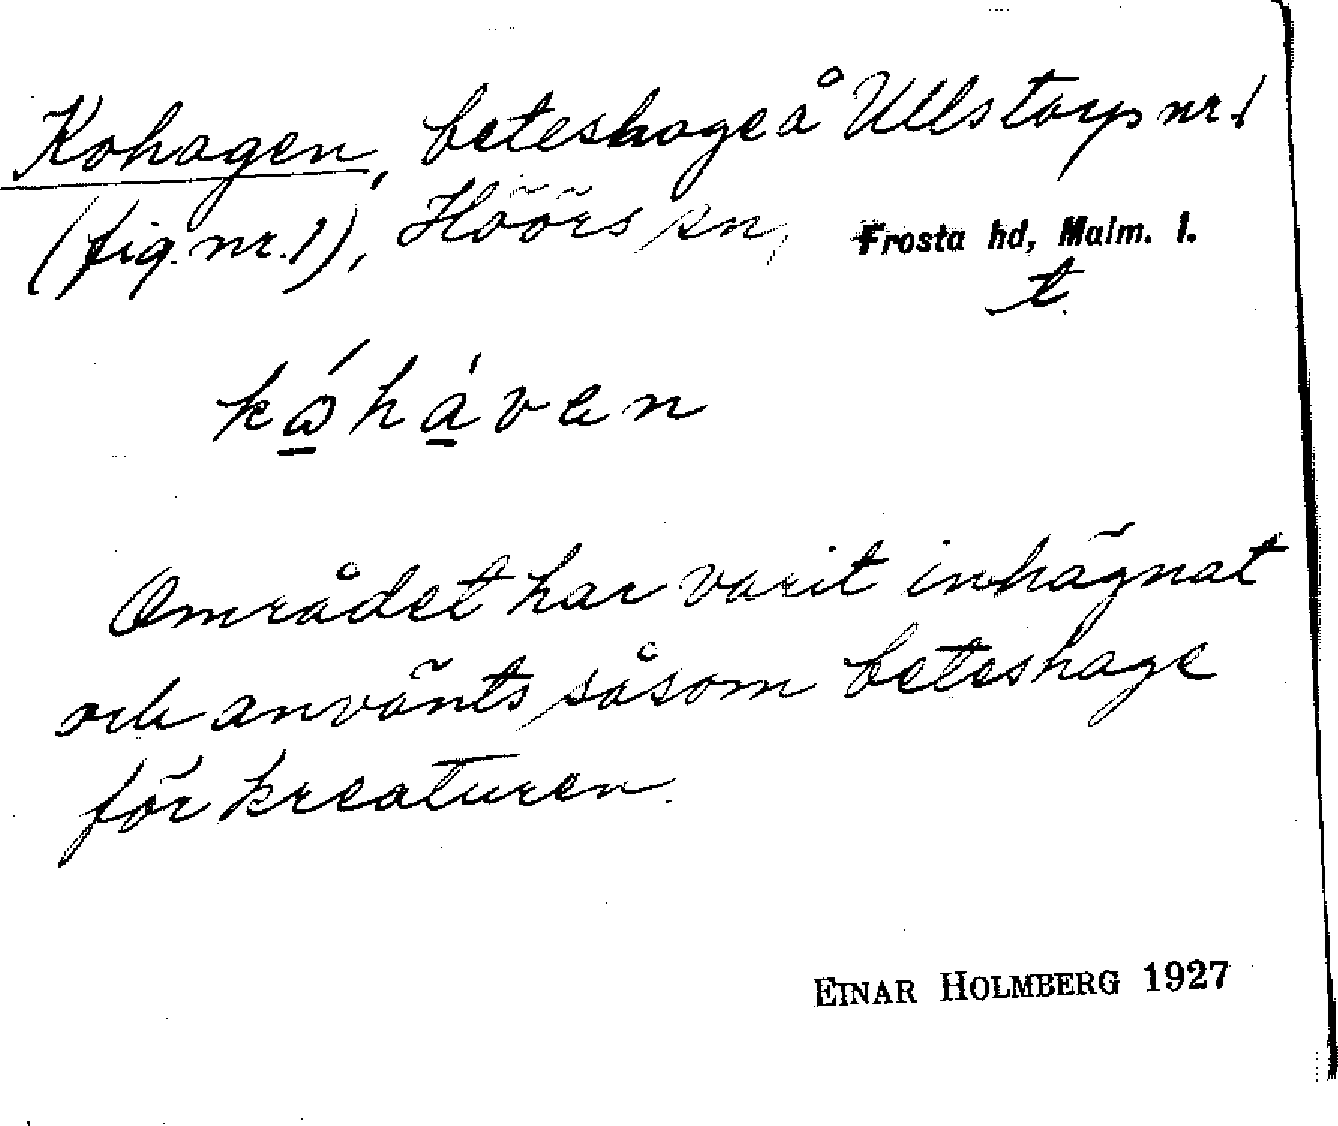 Kohagen, beteshage å Ullstorp nr 1
(fig. nr. 1), Höörs sn, Frosta hd, Malm. l.
t.
kώ̱hà̱ven
Området har varit inhägnat
och använts såsom beteshage
för kreaturen.
EINAR HOLMBERG 1927